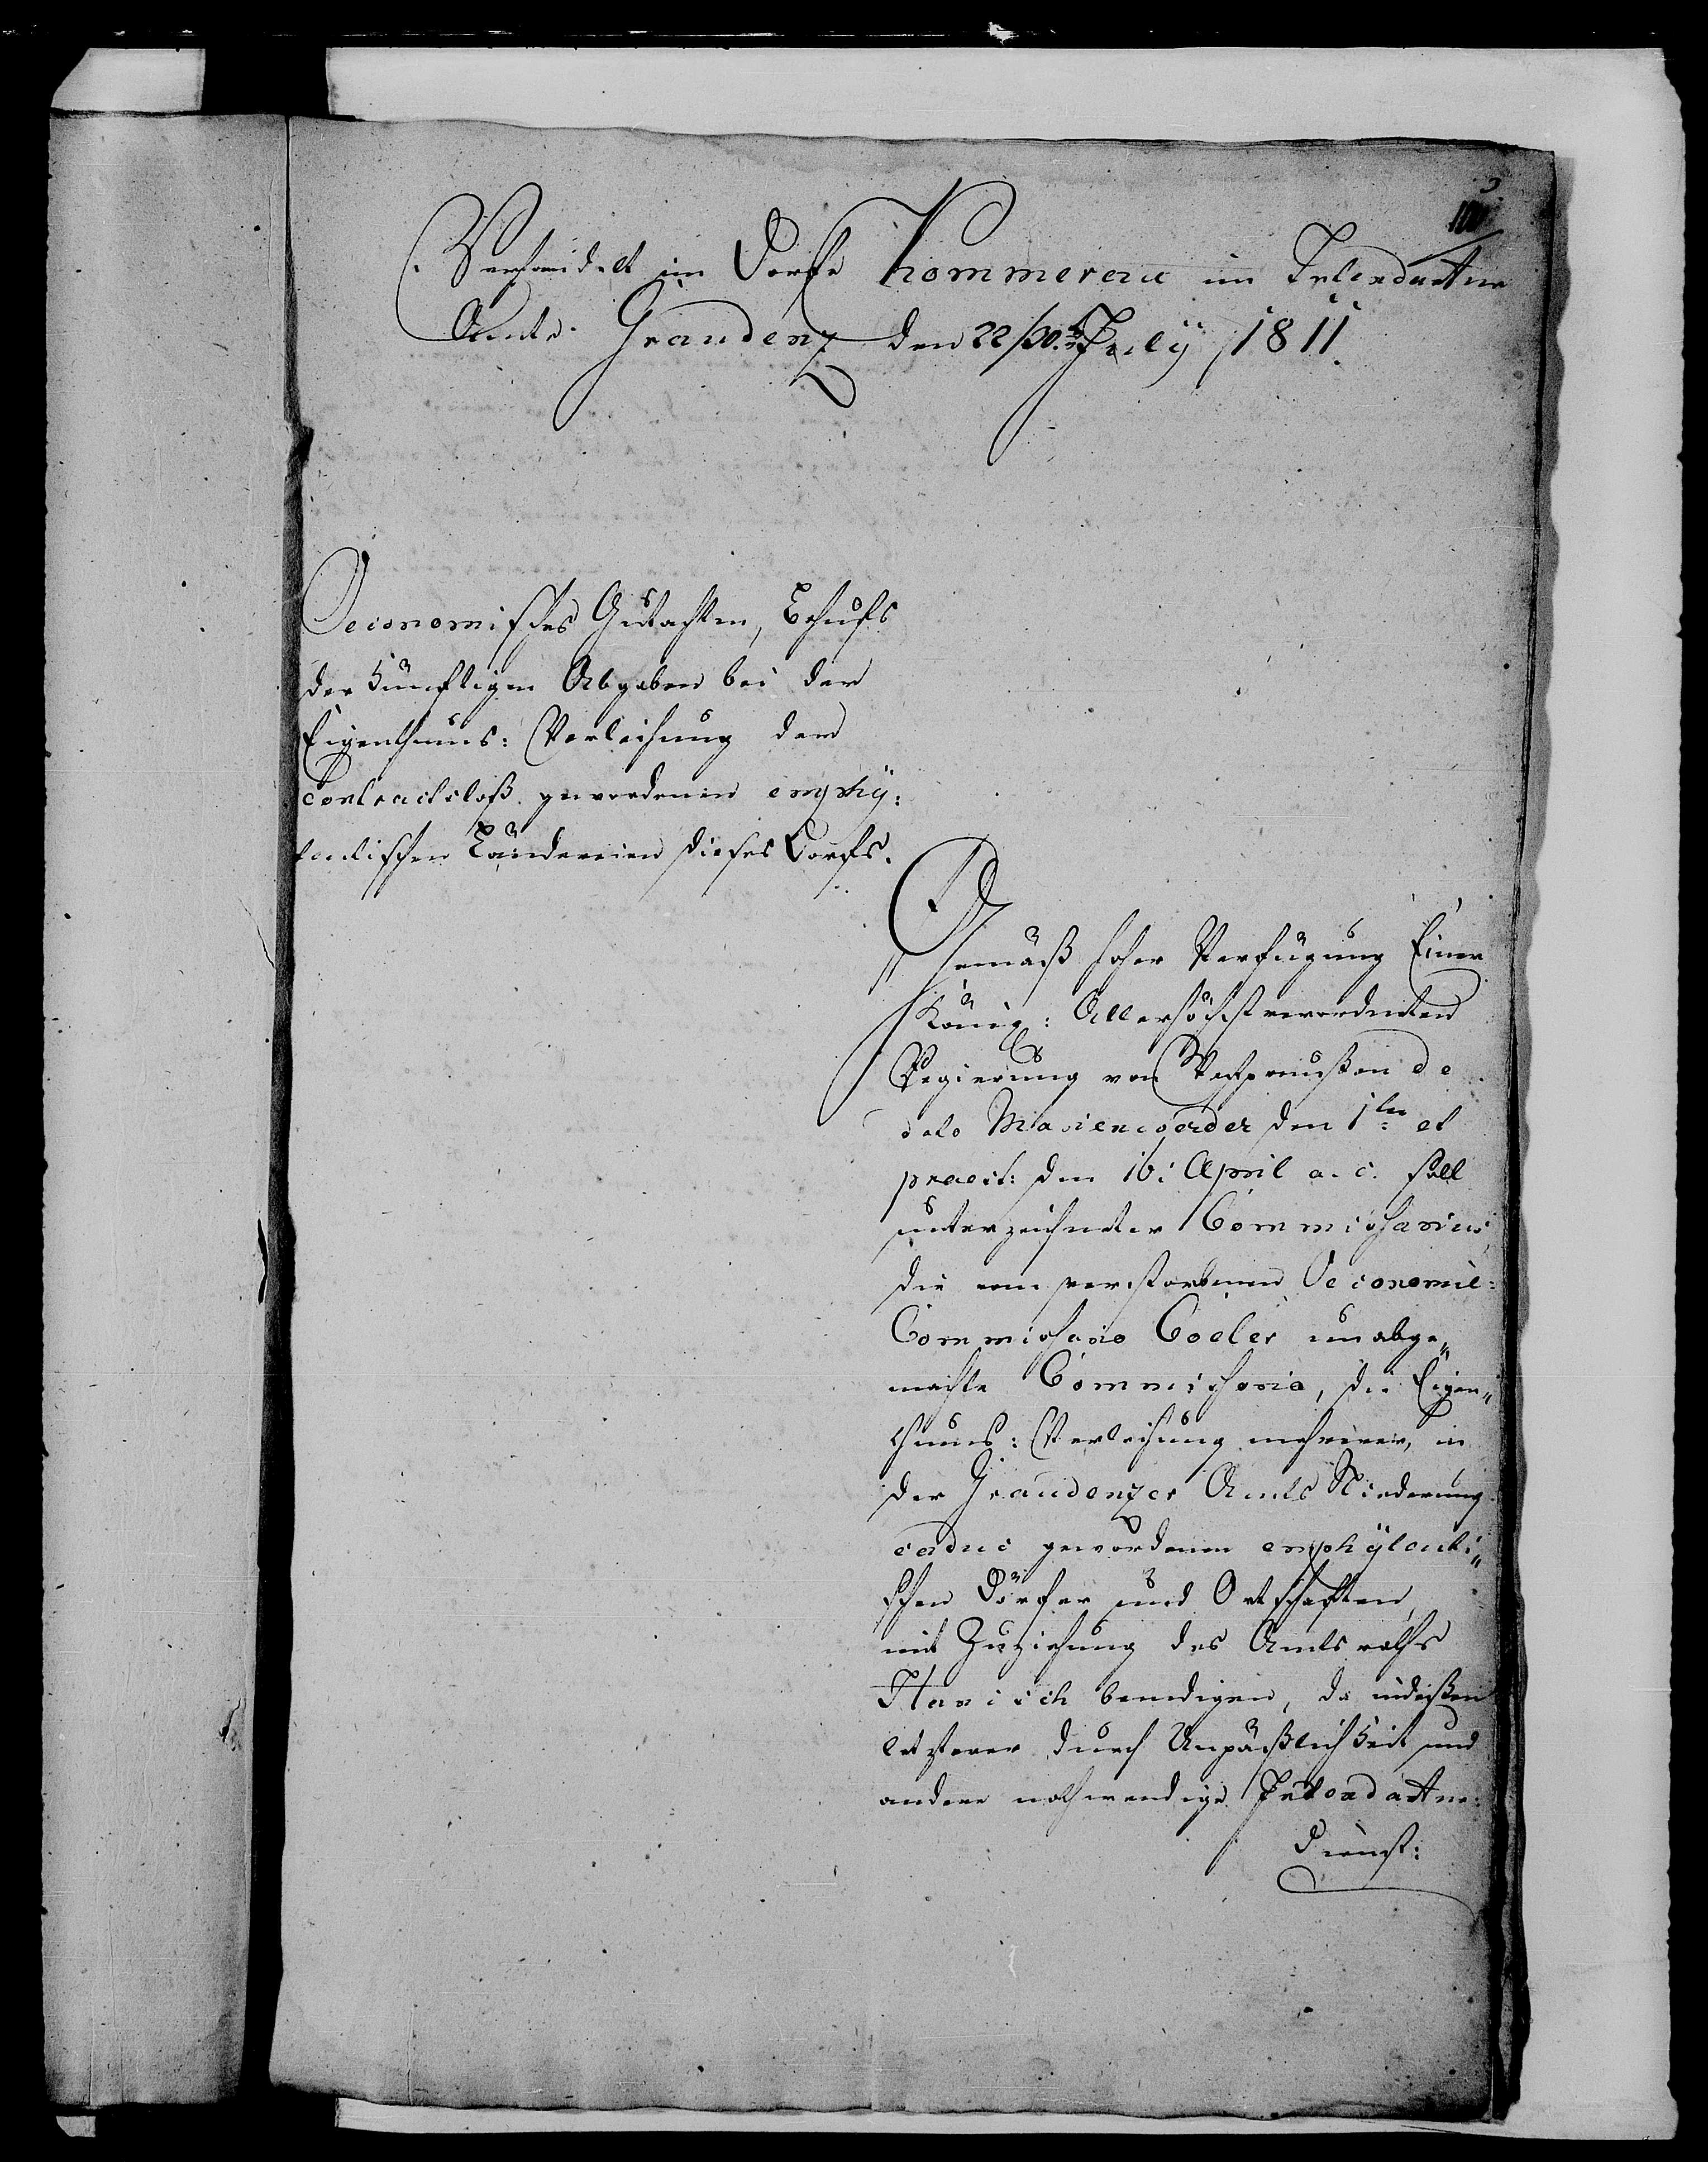 Verhandelt im Dorfe Kommerau im Intendantur
Amte Graudenz den 22/30ten July 1811.
Oeconomisches Gutachten, Behufs
der künftigen Abgaben bei der
Eigenthums: Verleihung der
contractsloß gewordenen emphy:
teutischen Ländereien dieses Dorfs.
Gemäß hoher Verfügung Einer
König: Allerhöchst verordneten
Regierung von Westpreußen de
dato Marienwerder den 1ten et
praes: den 16: April a. c. soll
unterzeichneter Commissarius,
die vom verstorbenen Oeconomie:
Commissario Coeler unabge„
machte Commissoria, die Eigen„
thums: Verleihung mehrerer, in
der Graudenzer Amts Niederung
caduc gewordenen emphyteuti„
schen Dörfer und Ortschaften,
mit Zuziehung des Amtsraths
beendigen, da indeßen
letzterer durch Unpäßlichkeit und
andere nothwendige Intendantur:
Dienst: